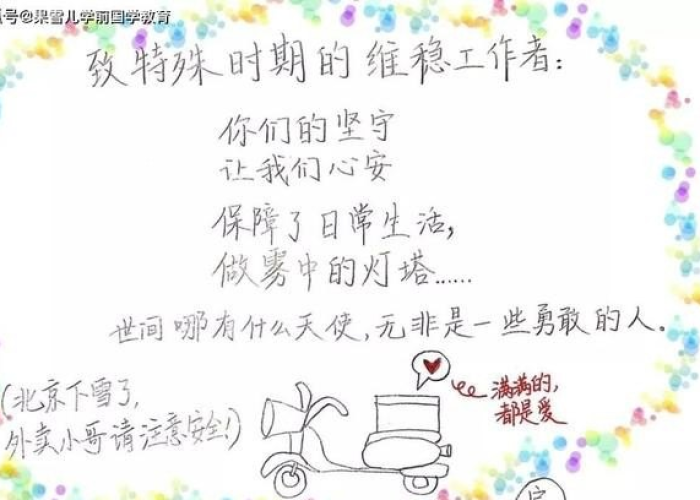 号@果雪儿学前国学教育
致特殊时期的维稳工作者：
你们的坚守
让我们心安
保障了日常生活，
做雾中的灯塔……
世间哪有什么天使，无非是一些勇敢的人。
（北京下雪了，
外卖小哥请注意安全！）
满满的，
都是爱